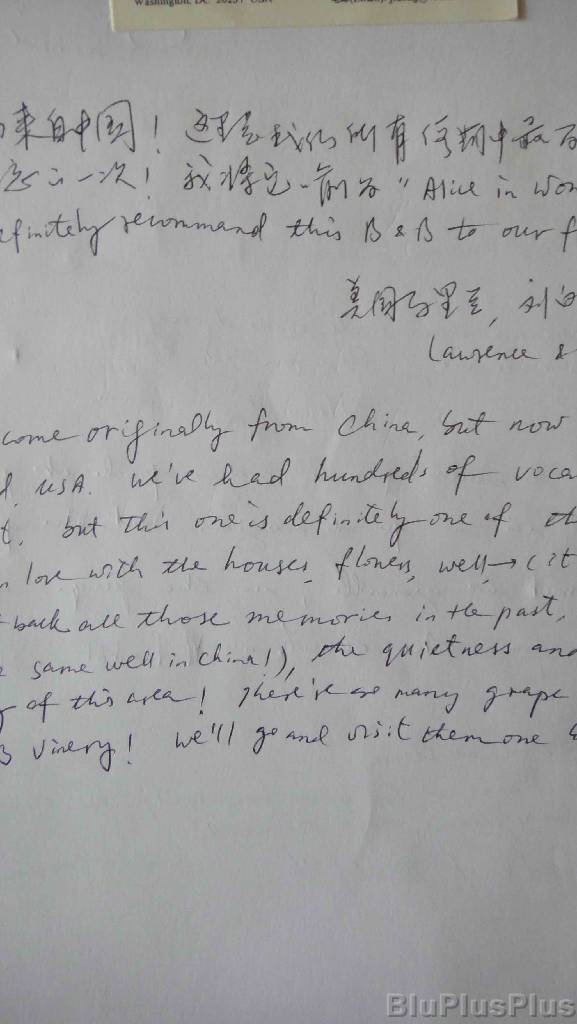 Washington, DC 20237 USA
来自中国！这里是我们所有假期中最
一次！我将它 "Alice in Won
efinitely recommand this B & B to our f
美国马里兰, 刘
Lawrence &
come originally from China, but now
USA. we've had hundreds of voca
t. but this one is definitely one of th
love with the houses, flowers, well → (it
back all those memories in the past,
same well in China!), the quietness and
of this area! There're so many grape
B vinery! we'll go and visit them one
BluPlusPlus